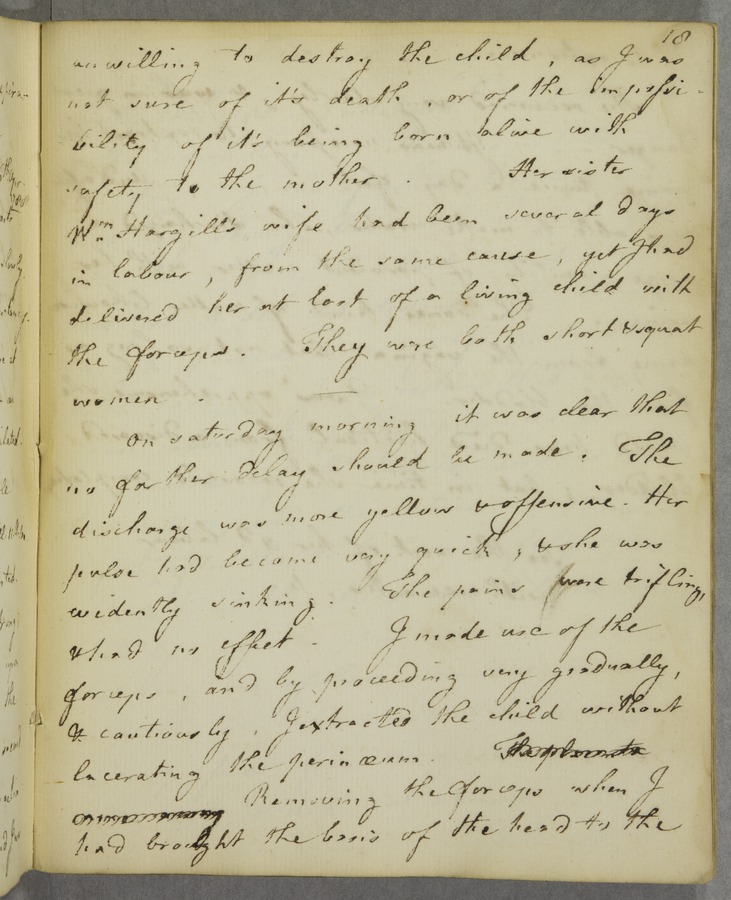 18
unwilling to destroy the child, as I was
not sure of it's death, or of the impossi-
bility of it's being born alive with
safety to the mother. Her sister
Wm Hargill's wife had been several days
in labour, from the same cause, yet I had
delivered her at last of a living child with
the forceps. They were both short & squat
women.
On saturday morning it was clear that
no farther delay should be made. The
discharge was more yellow & offensive. Her
pulse had become very quick, & she was
evidently sinking. The pains were trifling,
& had no effect. I made use of the
forceps, and by proceeding very gradually,
& cautiously, I extracted the child without
lacerating the perinæum. The placenta
Removing the forceps when I
had brought the basis of the head to the